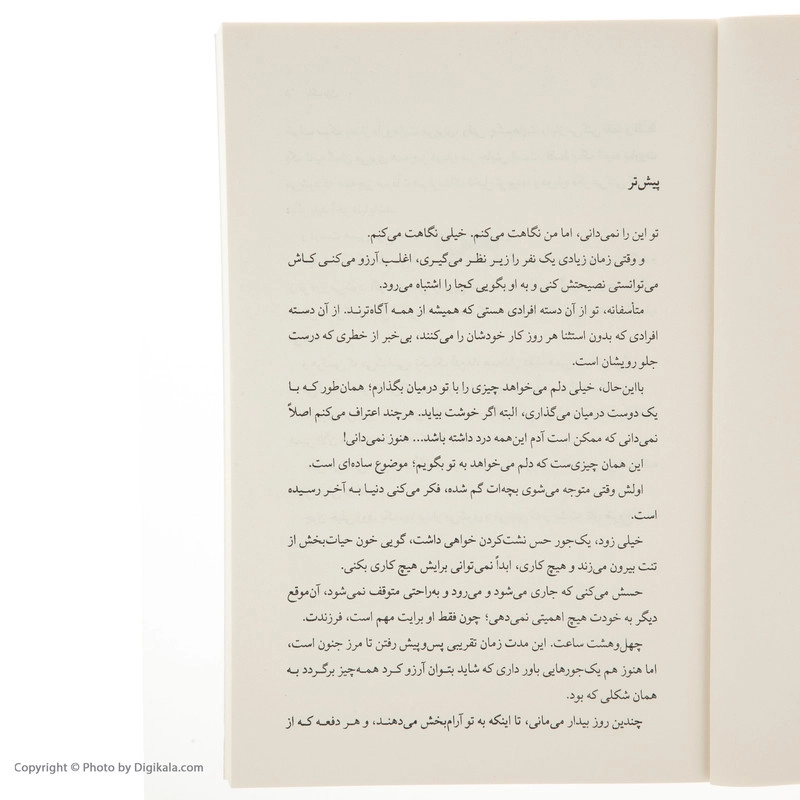 پیش‌تر
تو این را نمی‌دانی، اما من نگاهت می‌کنم. خیلی نگاهت می‌کنم.
و وقتی زمان زیادی یک نفر را زیـر نظـر می‌گیـری، اغلـب آرزو می‌کنـی کـاش
می‌توانستی نصیحتش کنی و به او بگویی کجا را اشتباه می‌رود.
متأسفانه، تو از آن دسته افرادی هستی که همیشه از همـه آگاه‌ترنـد. از آن دسـته
افرادی که بدون استثنا هر روز کار خودشان را می‌کنند، بی‌خبر از خطری که درست
جلو رویشان است.
بااین‌حال، خیلی دلم می‌خواهد چیزی را با تو درمیان بگذارم؛ همان‌طور کـه بـا
یک دوست درمیان می‌گذاری، البته اگر خوشت بیاید. هرچند اعتراف می‌کنم اصلاً
نمی‌دانی که ممکن است آدم این‌همه درد داشته باشد... هنوز نمی‌دانی!
این همان چیزی‌ست که دلم می‌خواهد به تو بگویم؛ موضوع ساده‌ای است.
اولش وقتی متوجه می‌شوی بچه‌ات گم شده، فکر می‌کنی دنیـا بـه آخـر رسـیده
است.
خیلی زود، یک‌جور حس نشت‌کردن خواهی داشت، گویی خون حیات‌بخش از
تنت بیرون می‌زند و هیچ کاری، ابداً نمی‌توانی برایش هیچ کاری بکنی.
حسش می‌کنی که جاری می‌شود و می‌رود و به‌راحتی متوقف نمی‌شود، آن‌موقع
دیگر به خودت هیچ اهمیتی نمی‌دهی؛ چون فقط او برایت مهم است، فرزندت.
چهل‌وهشت ساعت. این مدت زمان تقریبی پس‌وپیش رفتن تا مرز جنون است،
اما هنوز هم یک‌جورهایی باور داری که شاید بتـوان آرزو کـرد همـه‌چیز برگـردد بـه
همان شکلی که بود.
چندین روز بیدار می‌مانی، تا اینکه به تو آرام‌بخش می‌دهنـد، و هـر دفعـه کـه از
Copyright © Photo by Digikala.com